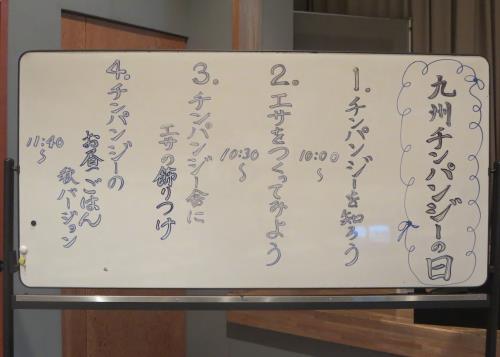 九州チンパンジーの日
1.チンパンジーを知ろう
10:00〜
2.エサをつくってみよう
10:30〜
3.チンパンジー舎に
エサの飾りつけ
4.チンパンジーの
お昼ごはん
秋バージョン
11:40〜